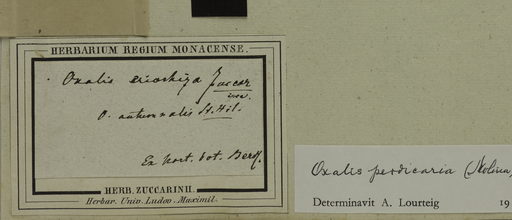 HERBARIUM REGIUM MONACENSE.
Oxalis eriorhiza Zuccar
O. autumnalis St. Hil.
Ex hort. bot. Berol.
HERB. ZUCCARINII.
Herbar. Univ. Ludov. Maximil.
Oxalis perdicaria (Molina)
Determinavit A. Lourteig 19